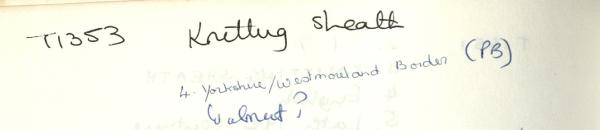 T1353 Knitting sheath
4. Yorkshire/Westmorland Border (PB)
Walnut?